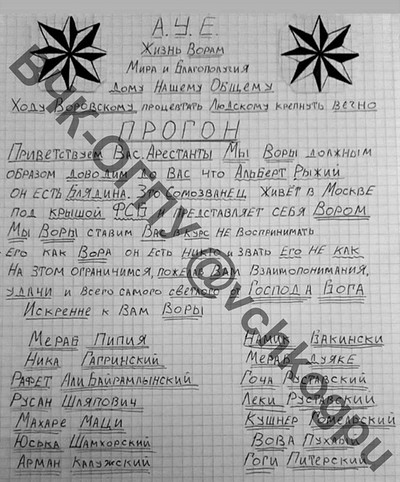 А.У.Е.
Жизнь Ворам
Мира и Благополучия
Дому Нашему Общему
Ходу Воровскому процветать Людскому крепнуть вечно
ПРОГОН
Приветствуем Вас Арестанты Мы Воры должным
образом доводим до Вас что Альберт Рыжий
он есть Блядина. Это Сомозванец живёт в Москве
под крышой ФСБ и представляет себя Вором
Мы Воры ставим Вас в курс не воспринимать
его как Вора он есть никто и звать его не как
На этом ограничимся, пожелав Вам Взаимопонимания,
удачи и всего самого светлого от Господа Бога
Искренне к Вам Воры
Мераб Пипия
Ника Гагринский
Рафет Али Байрамлынский
Русан Шляпович
Махаре Маци
Юська Шамхорский
Арман Калужский
Намик Бакински
Мераб Дуяке
Гоча Руставский
Леки Руставский
Кушнер Гомельский
Вова Пухлый
Гоги Питерский
@vchkogpu